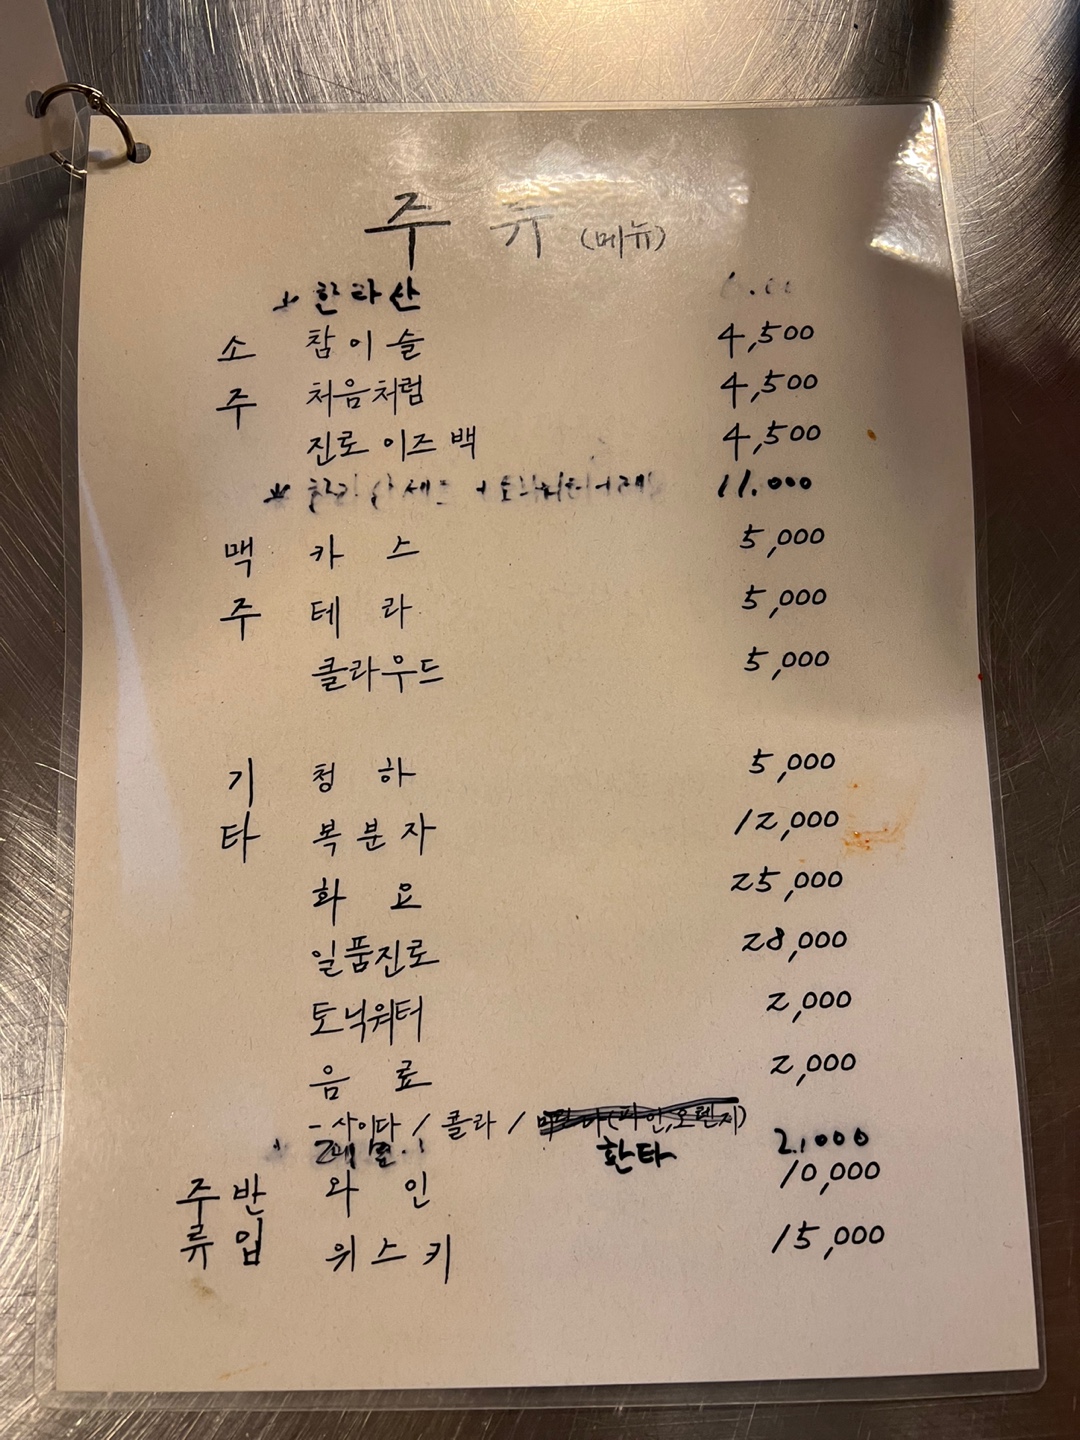 주 류 (메뉴)
한라산
소 참이슬 4,500
주 처음처럼 4,500
진로이즈백 4,500
11.000
맥 카스 5,000
주 테라 5,000
클라우드 5,000
기 청하 5,000
타 복분자 12,000
화요 25,000
일품진로 28,000
토닉워터 2,000
음료 2,000
- 사이다 / 콜라 / (파인,오렌지)
환타 2.000
주류 반입 와인 10,000
위스키 15,000